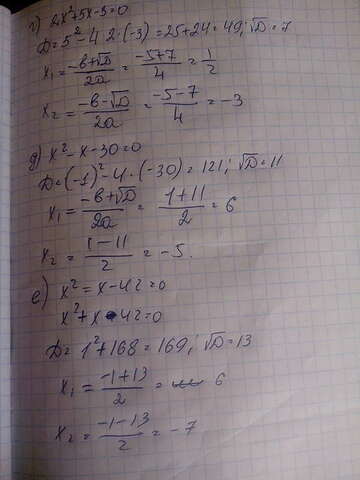 г) 2x²+5x-3=0
D=5²-4·2·(-3)=25+24=49; √D=7
x₁=(-b+√D)/2a=(-5+7)/4=1/2
x₂=(-b-√D)/2a=(-5-7)/4=-3
д) x²-x-30=0
D=(-1)²-4·(-30)=121; √D=11
x₁=(-b+√D)/2a=(1+11)/2=6
x₂=(1-11)/2=-5.
е) x²=x-42=0
x²+x-42=0
D=1²+168=169; √D=13
x₁=(-1+13)/2=6
x₂=(-1-13)/2=-7